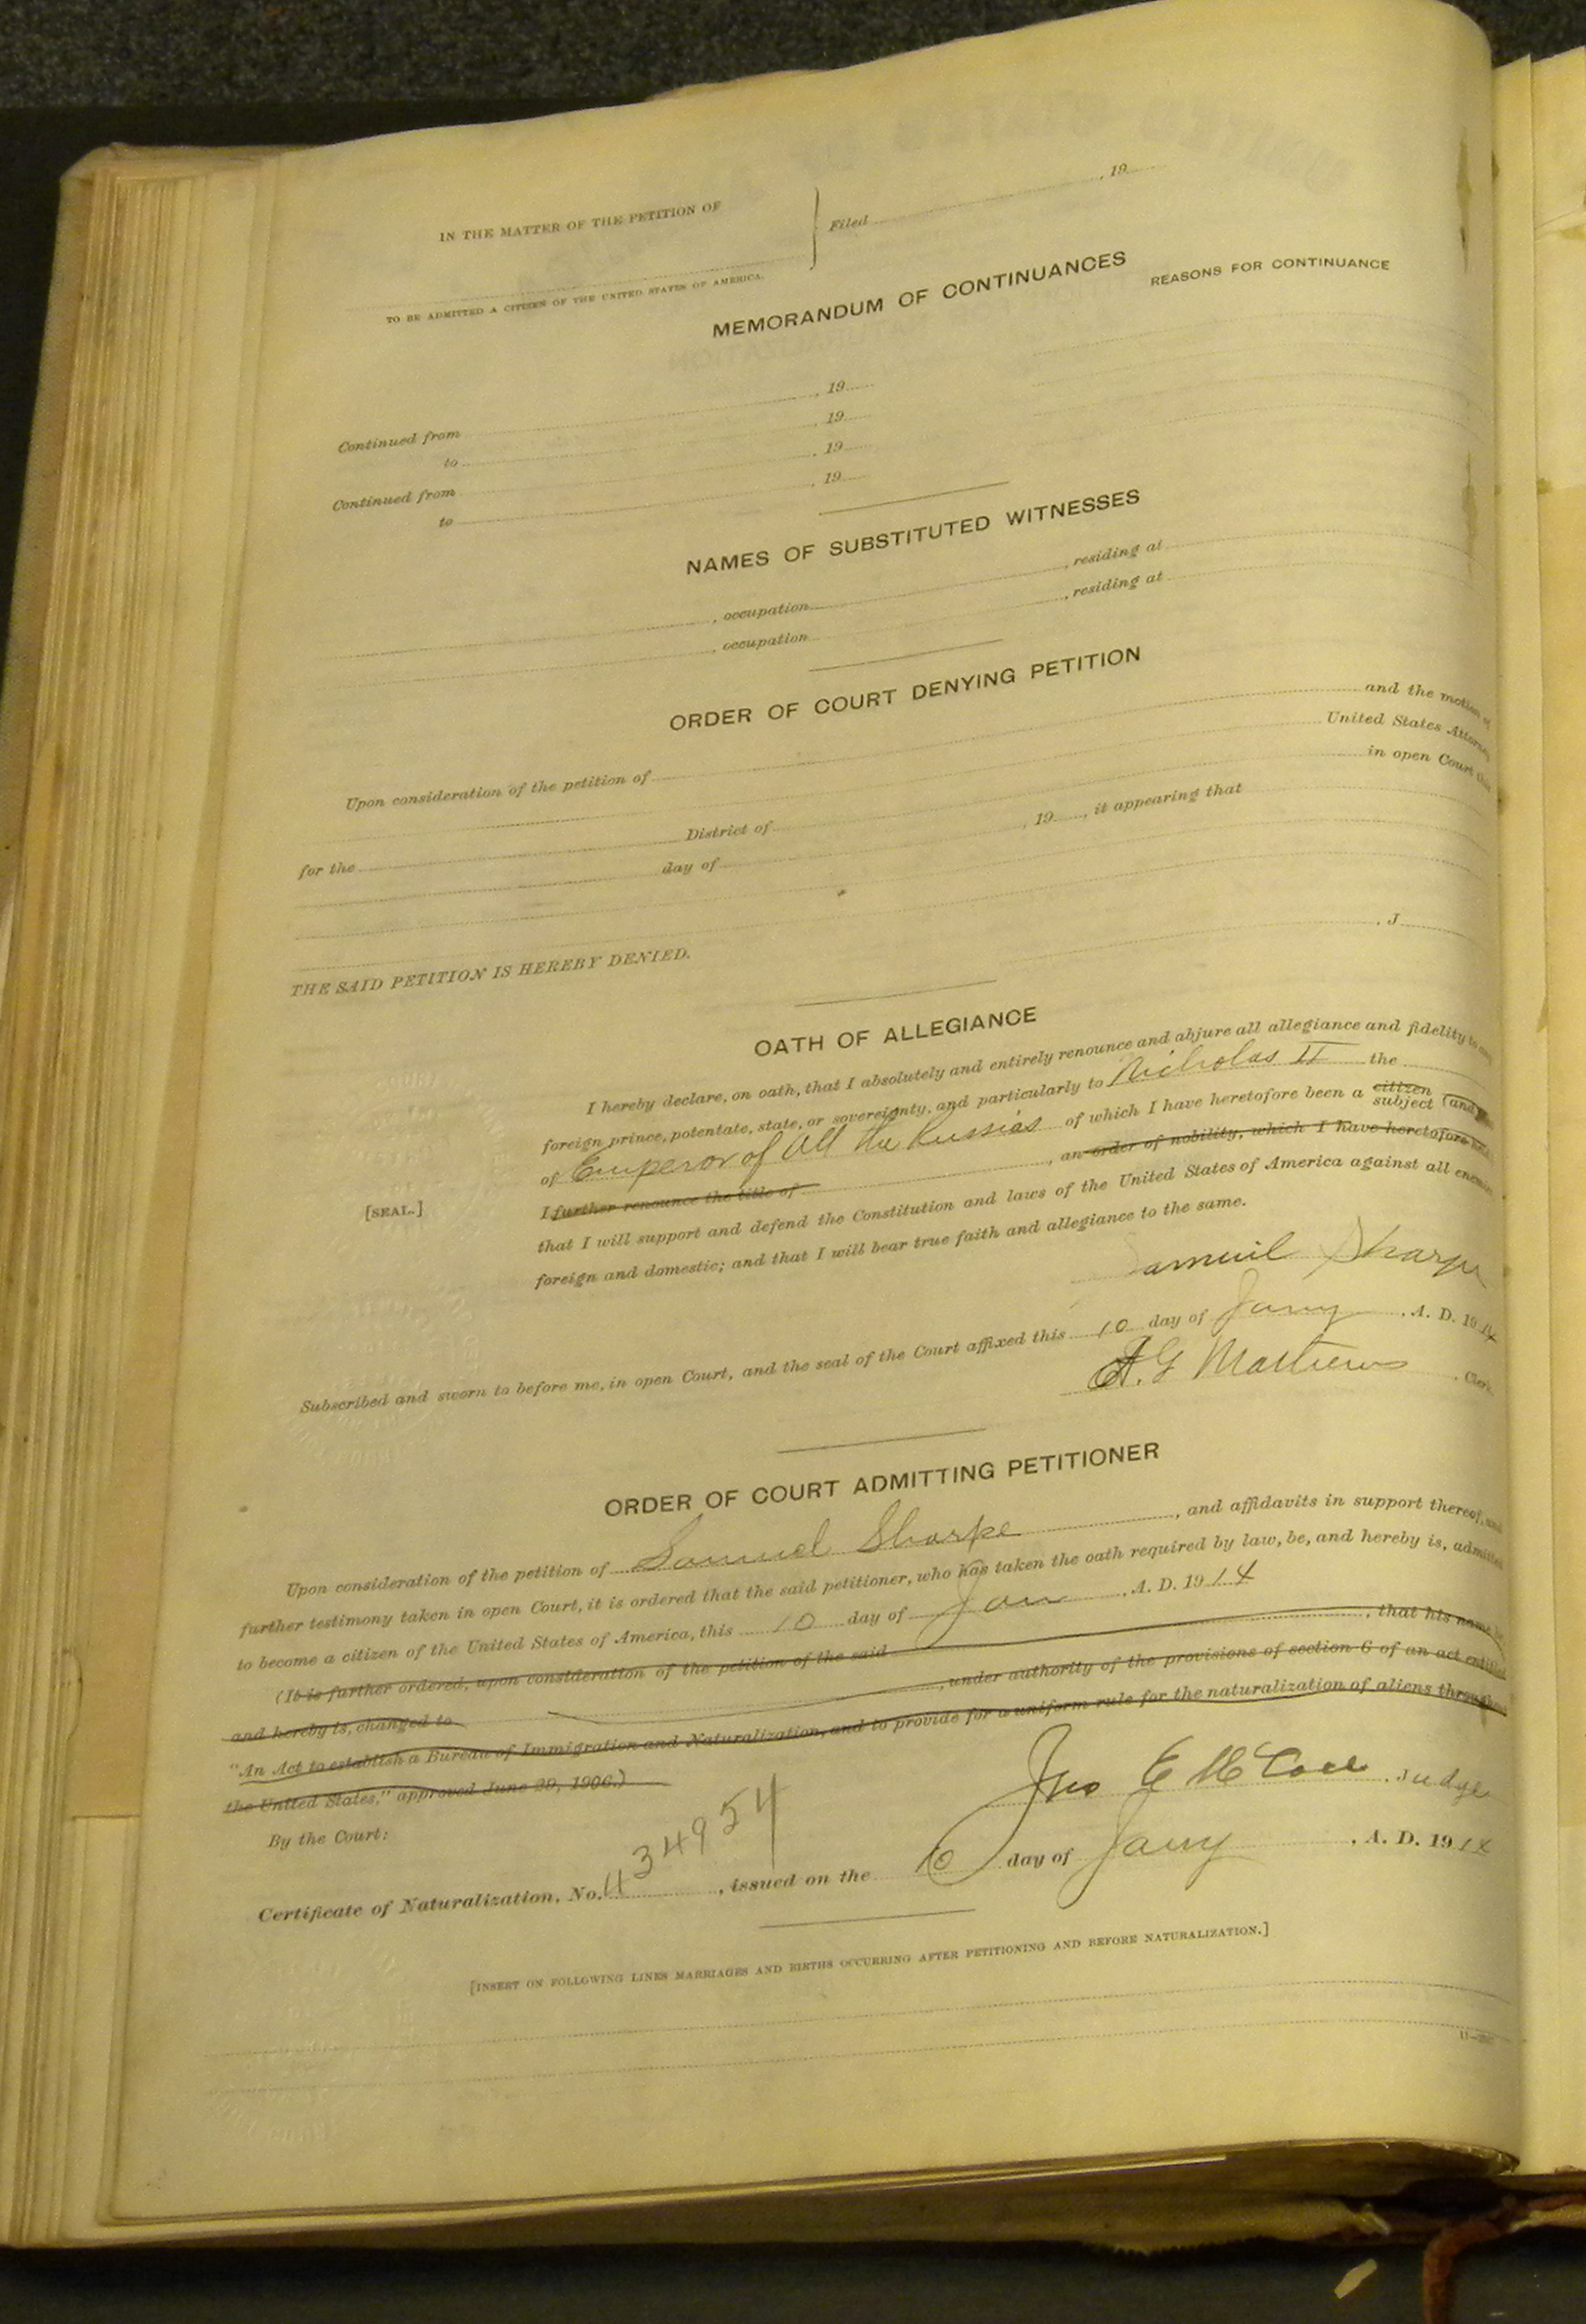 IN THE MATTER OF THE PETITION OF
Filed , 19
TO BE ADMITTED A CITIZEN OF THE UNITED STATES OF AMERICA.
MEMORANDUM OF CONTINUANCES
REASONS FOR CONTINUANCE
Continued from , 19
to , 19
Continued from , 19
to , 19
NAMES OF SUBSTITUTED WITNESSES
, occupation , residing at
, occupation , residing at
ORDER OF COURT DENYING PETITION
Upon consideration of the petition of and the motion of
United States Attorney
for the District of in open Court this
day of , 19 , it appearing that
THE SAID PETITION IS HEREBY DENIED.
, J
OATH OF ALLEGIANCE
I hereby declare, on oath, that I absolutely and entirely renounce and abjure all allegiance and fidelity to any
foreign prince, potentate, state, or sovereignty, and particularly to Nicholas II the
of Emperor of All the Russias of which I have heretofore been a citizen subject (and
I further renounce the title of , an order of nobility, which I have heretofore held
that I will support and defend the Constitution and laws of the United States of America against all enemies
foreign and domestic; and that I will bear true faith and allegiance to the same.
[SEAL.]
Samuel Sharpe
Subscribed and sworn to before me, in open Court, and the seal of the Court affixed this 10 day of Jany , A. D. 1914
A. G Matthews , Clerk.
ORDER OF COURT ADMITTING PETITIONER
Upon consideration of the petition of Samuel Sharpe , and affidavits in support thereof, and
further testimony taken in open Court, it is ordered that the said petitioner, who has taken the oath required by law, be, and hereby is, admitted
to become a citizen of the United States of America, this 10 day of Jan , A. D. 1914
(It is further ordered, upon consideration of the petition of the said , that his name be
and hereby is, changed to , under authority of the provisions of section 6 of an act entitled
"An Act to establish a Bureau of Immigration and Naturalization, and to provide for a uniform rule for the naturalization of aliens throughout
the United States," approved June 29, 1906.)
By the Court:
Jno E McCall , Judge
Certificate of Naturalization, No. 434954 , issued on the 10 day of Jany , A. D. 1914
[INSERT ON FOLLOWING LINES MARRIAGES AND BIRTHS OCCURRING AFTER PETITIONING AND BEFORE NATURALIZATION.]